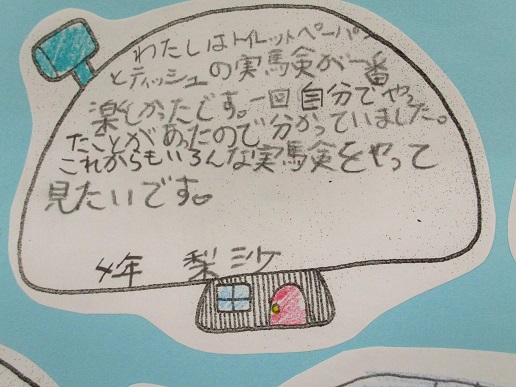 わたしはトイレットペーパー
とティッシュの実馬険が一番
楽しかったです。一回自分でやっ
たことがあったので分かっていました。
これからもいろんな実馬険をやって
見たいです。
4年 梨沙